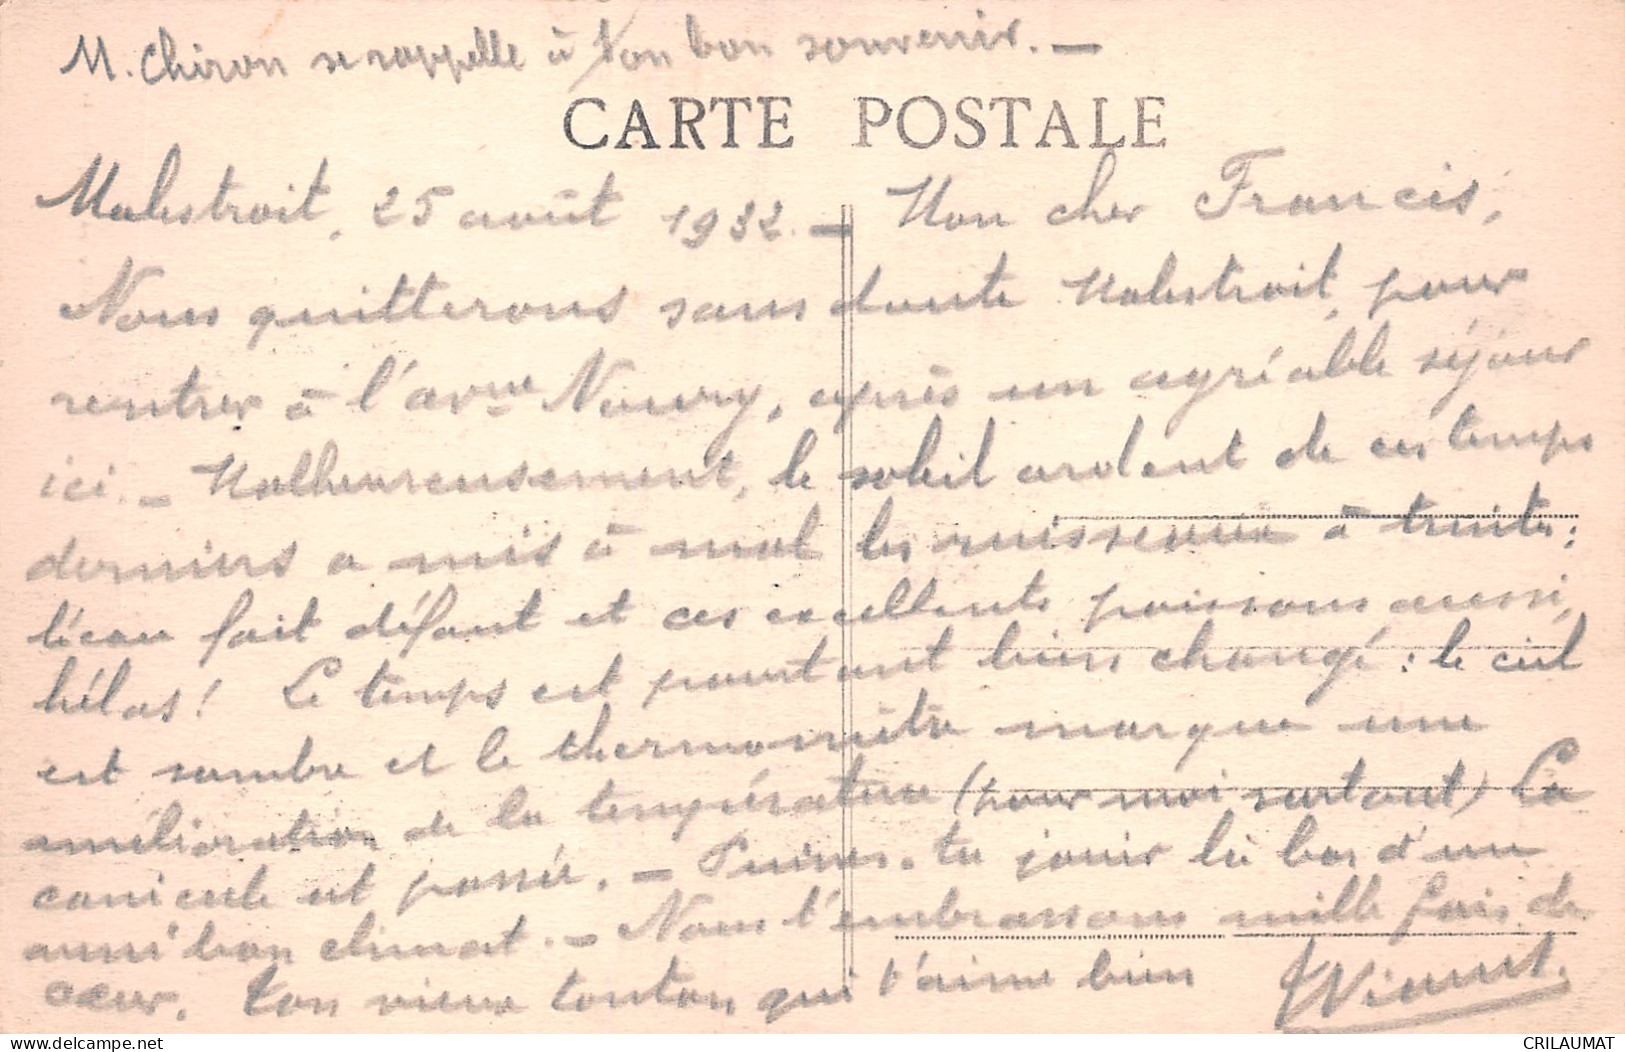 M. Chiron se rappelle à ton bon souvenir. —
CARTE POSTALE
Malestroit, 25 août 1932. — Mon cher Francis,
Nous quitterons sans doute Malestroit, pour
rentrer à l'avnue Noury, après un agréable séjour
ici. — Malheureusement, le soleil ardent de ces temps
derniers a mis à mal les ruisseaux à truites ;
l'eau fait défaut et ces excellents poissons aussi,
hélas ! Le temps est pourtant bien changé : le ciel
est sombre et le thermomètre marque une
amélioration de la température (pour moi surtout) La
canicule est passée. — Puisses-tu jouir là bas d'un
aussi bon climat. — Nous t'embrassons mille fois de
cœur. Ton vieux tonton qui t'aime bien
Vincent.
delcampe.net
CRILAUMAT